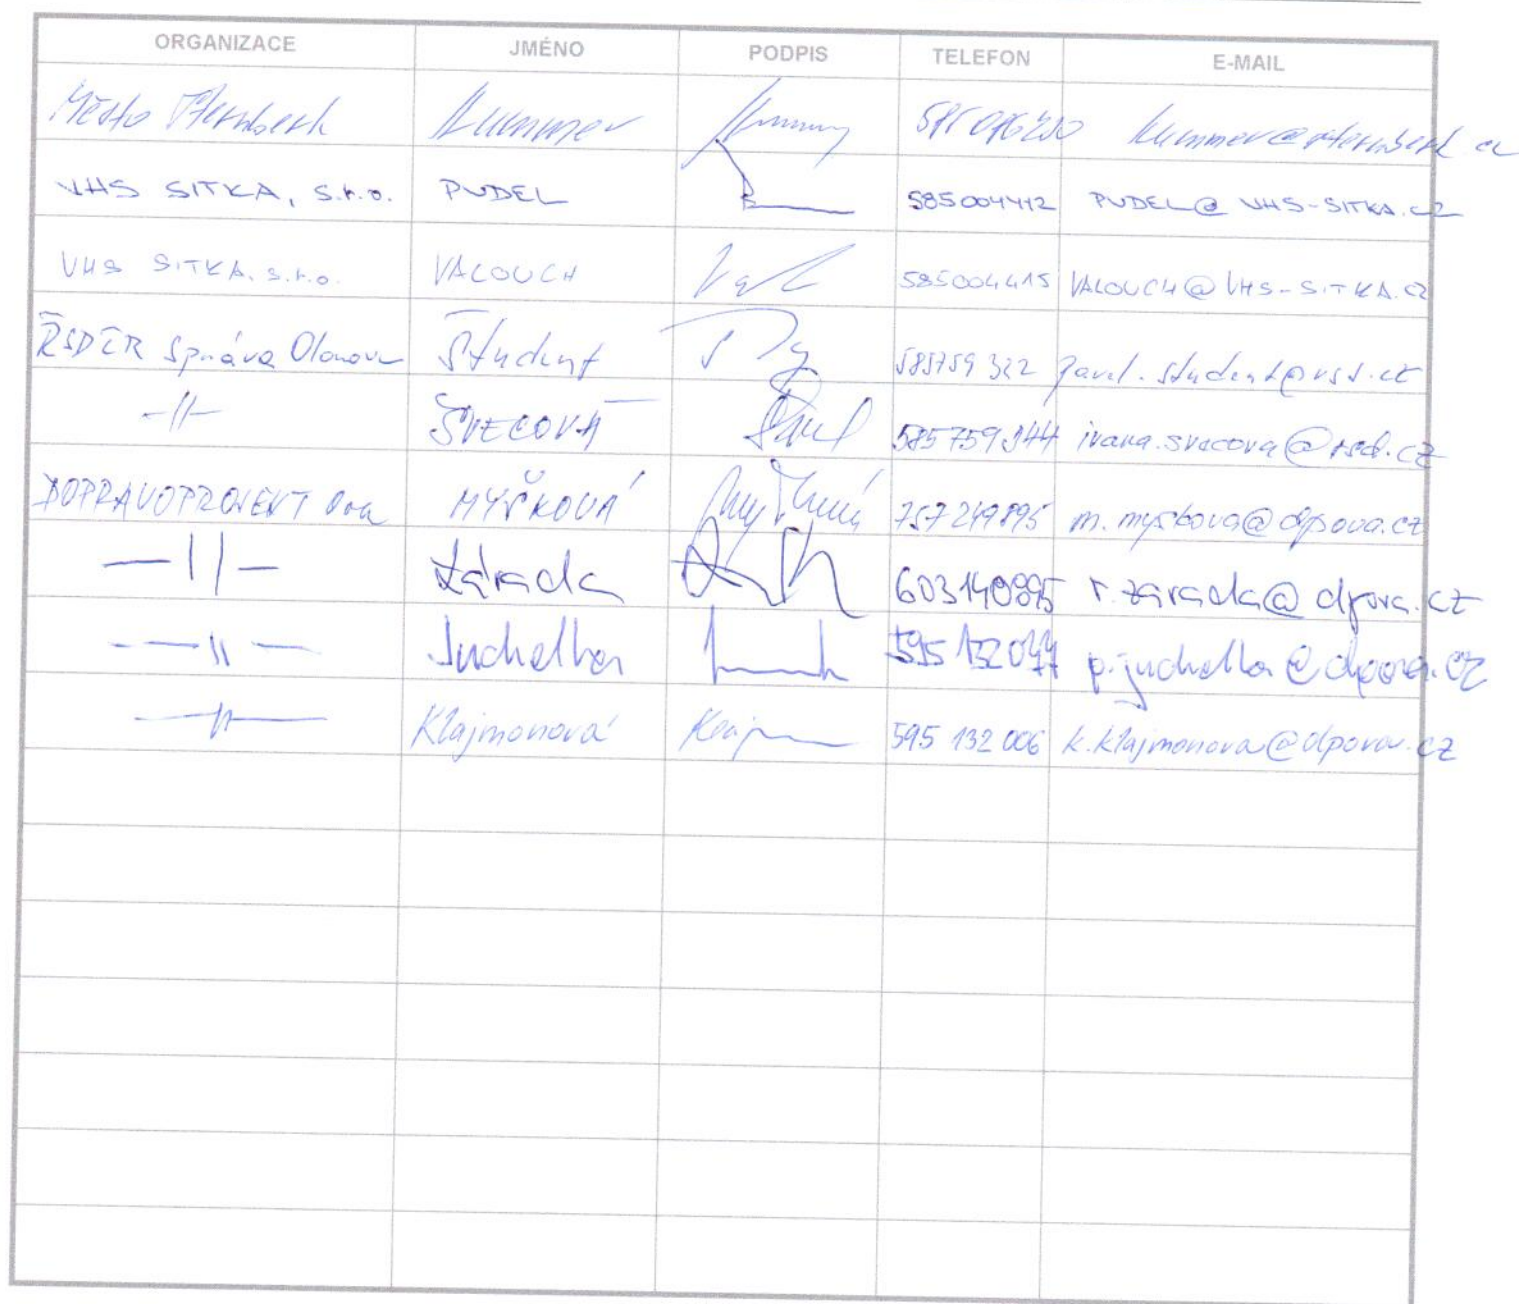 ORGANIZACE JMÉNO PODPIS TELEFON E-MAIL
Město Šternberk Kummer kummer@sternberk.cz
VHS SITKA, s.r.o. PUDEL 585004412 PUDEL@VHS-SITKA.CZ
VHS SITKA, s.r.o. VALOUCH 585004415 VALOUCH@VHS-SITKA.CZ
ŘSD ČR Správa Olomouc Student 585759 322 pavel.student@rsd.cz
-||- ŠVECOVÁ 585759344 ivana.svecova@rsd.cz
DOPRAVOPROJEKT Ova MYŠKOVÁ m.myskova@dpova.cz
-||- Zárada r.zarada@dpova.cz
-||- Juchelka p.juchelka@dpova.cz
-||- Klajmonová 595 132 006 k.klajmonova@dpova.cz